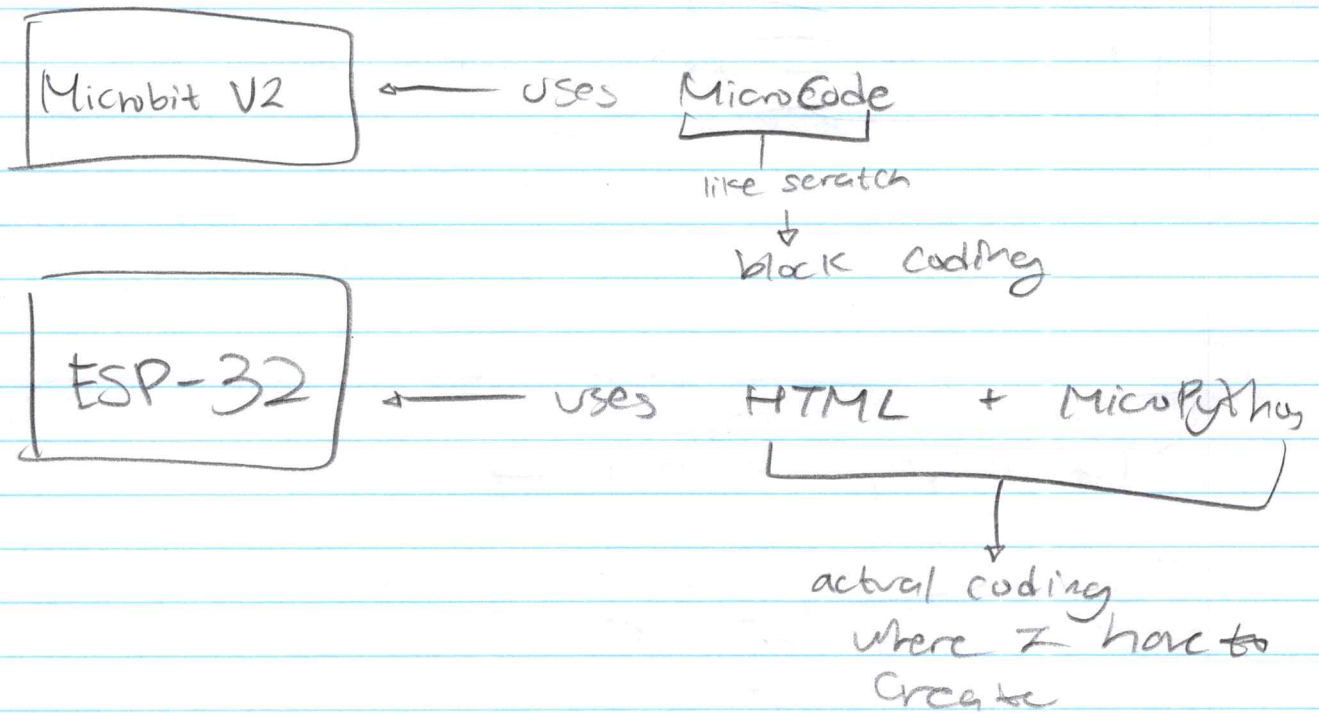 Microbit V2 uses MicroCode
like scratch
block coding
ESP-32 uses HTML + MicroPython
actual coding
where I have to
create